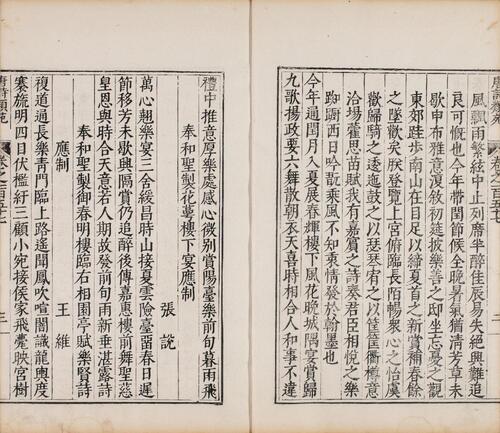 風飄雨繁絃中止列席半醉佳辰易失絕興難追
良可慨也今年帶閏節候全晚暑氣猶清芳草未
歇申布雅意復敘初筵披樂善之邸坐忘憂之觀
東郊跬步南山在目足以締夏首之新賞補春餘
之墜歡矣朕登覽上宮俯臨長陌暢衆心之怡虞
歡歸騎之逶迤鼓之以琴瑟侑之以筐筐衢樽意
洽場藿思苗賦我有嘉賓之詩奏君臣相悅之樂
踟躕西日吟翫乘風不知衷情發於翰墨也
今年過閏月入夏展春輝樓下風花晚城隅宴賞歸
九歌揚政要六舞散朝衣天喜時相合人和事不違
禮中推意厚樂處感心微別賞陽臺樂前旬暮雨飛
奉和聖製花萼樓下宴應制
張說
萬心翹樂宴三舍綏昌時山接夏雲險臺留春日遲
節移芳未歇興隔賞仍追醉後傳嘉惠樓前舞聖慈
皇恩與時合天意若人期故發前旬雨新垂湛露詩
奉和聖製御春明樓臨右相園亭賦樂賢詩
應制
王維
複道通長樂青門臨上路遙聞鳳吹喧闇識龍輿度
褰旒明四目伏檻紆三顧小宛接侯家飛甍映宮樹
唐詩類苑
卷之三百五十七